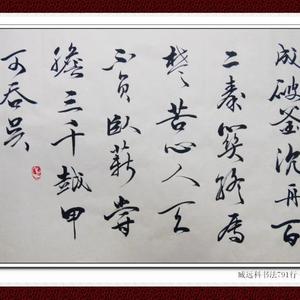 成破釜沉舟百
二秦关终属
楚苦心人天
不负卧薪尝
膽三千越甲
可吞吴
臧远科书法791行